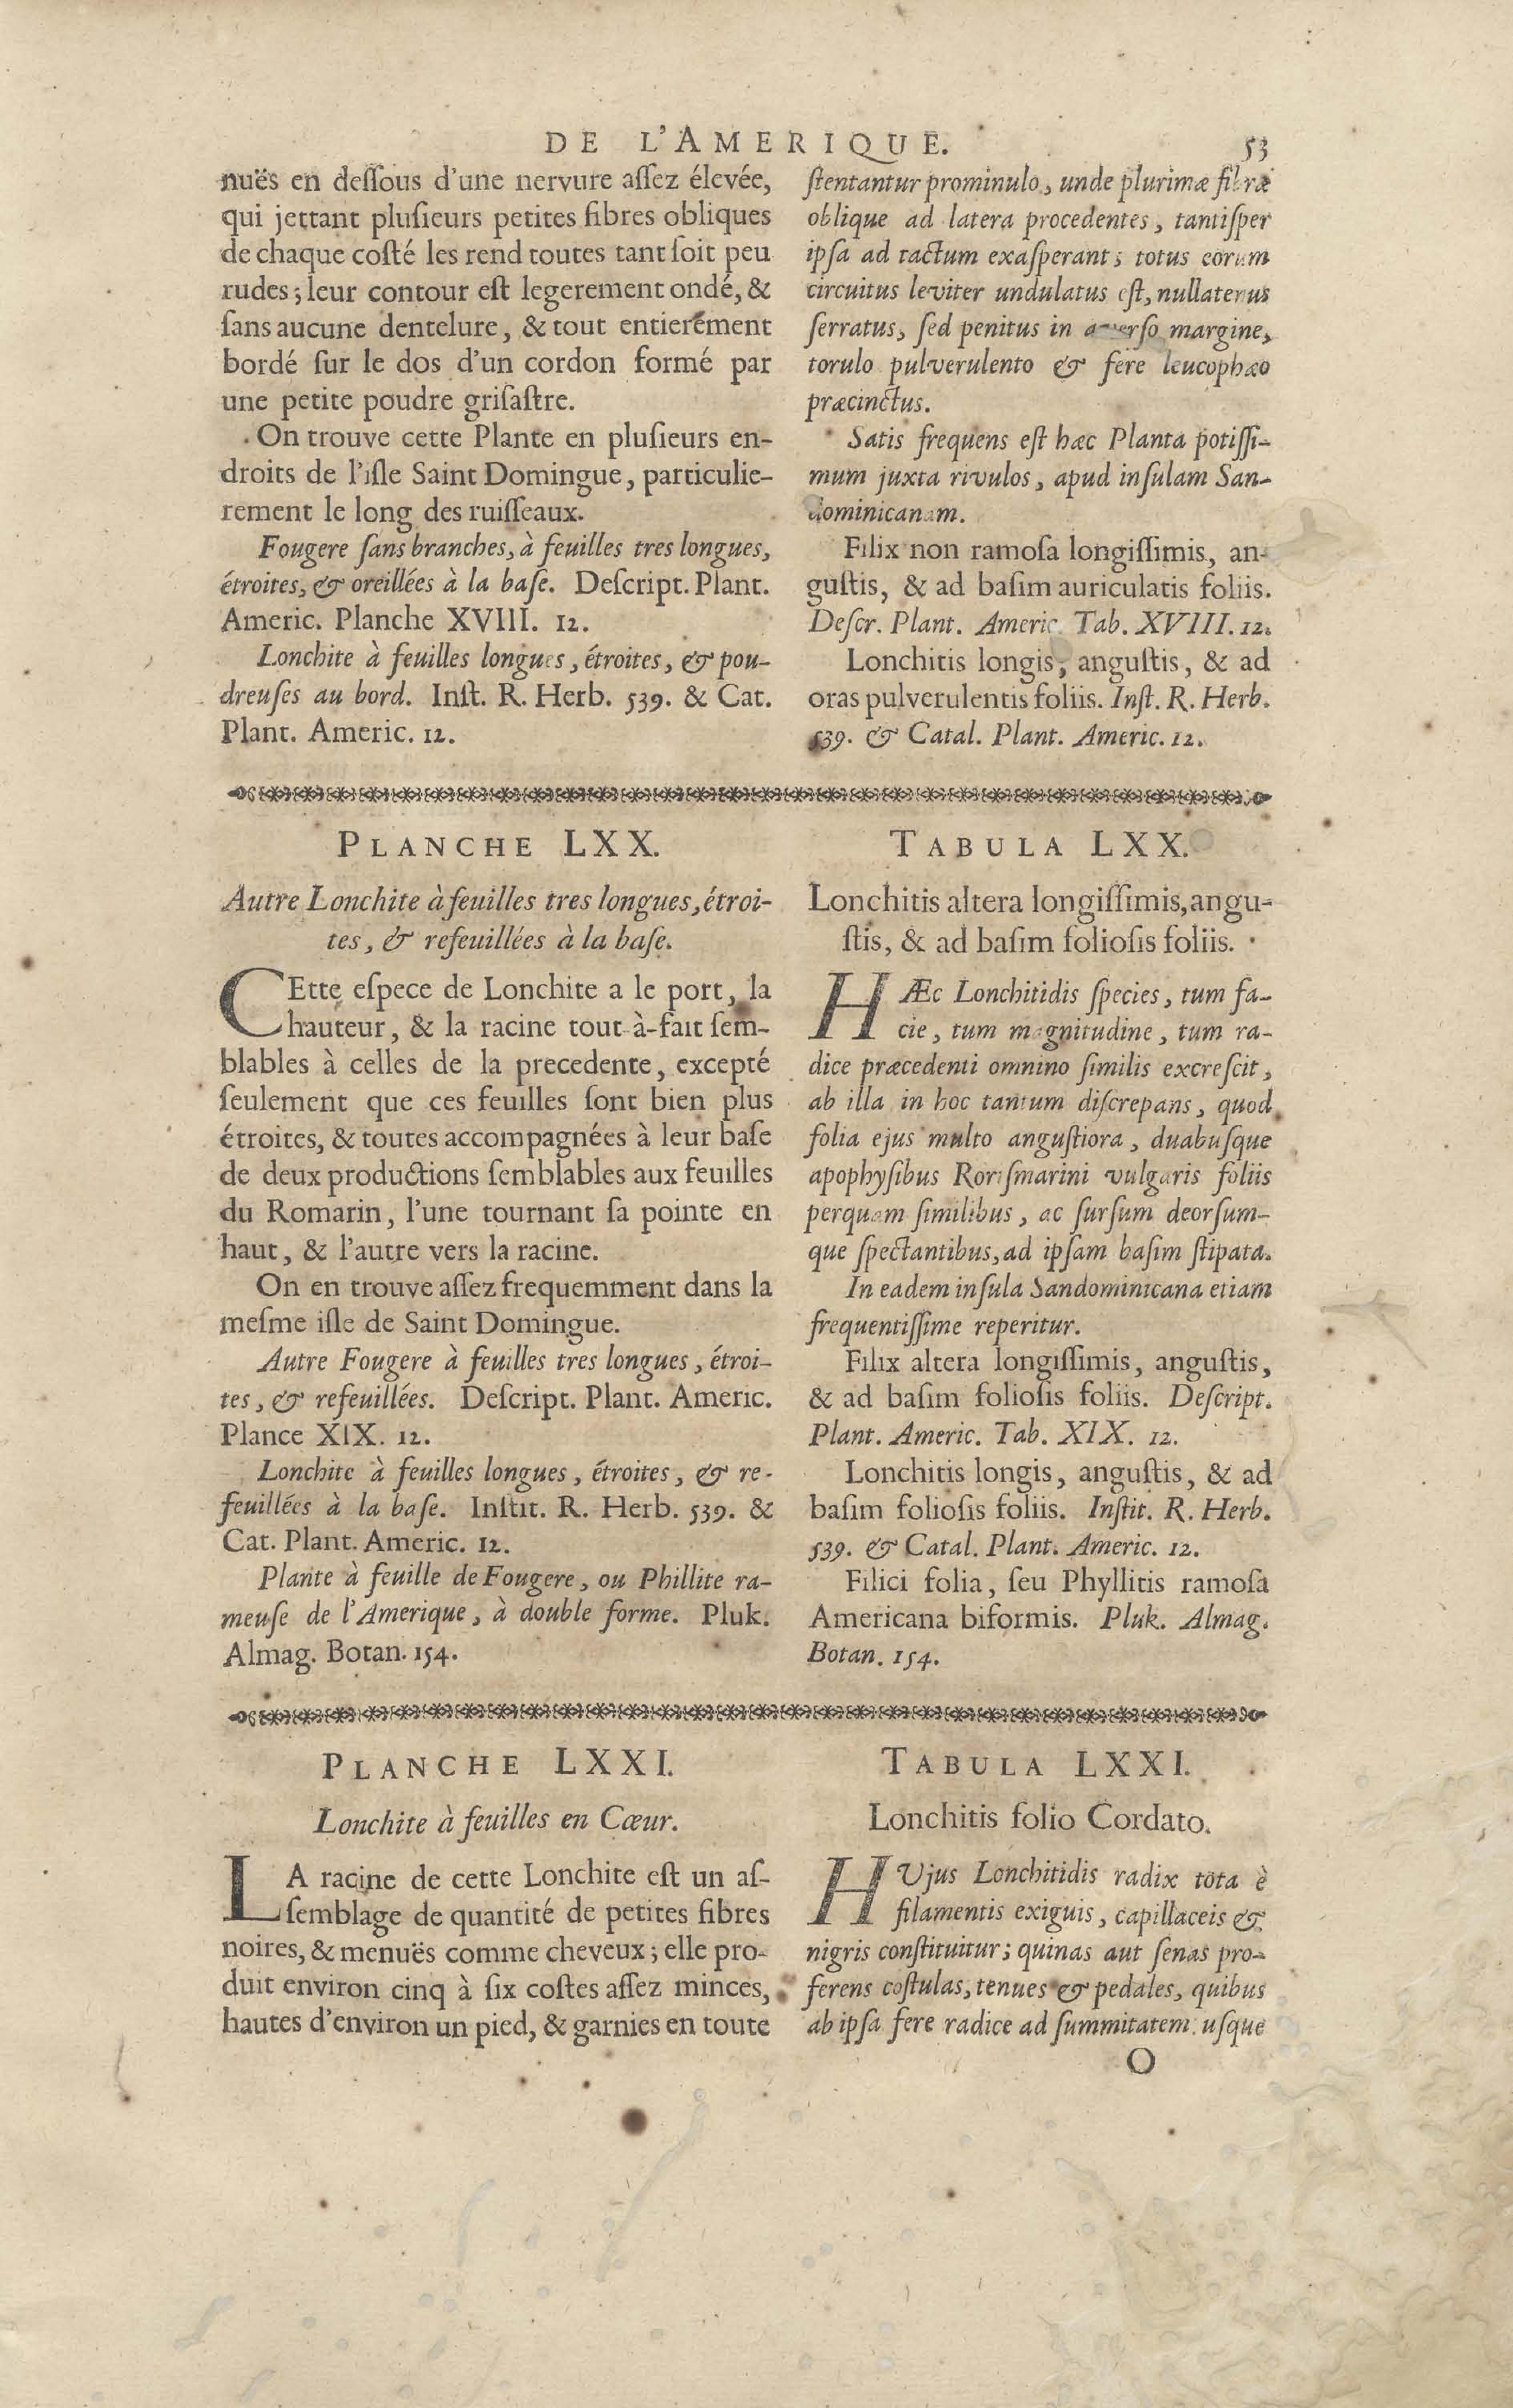 DE L'AMERIQUE.
53
nuës en deſſous d'une nervure aſſez élevée,
qui jettant pluſieurs petites fibres obliques
de chaque coſté les rend toutes tant ſoit peu
rudes; leur contour eſt legerement ondé, &
ſans aucune dentelure, & tout entierement
bordé ſur le dos d'un cordon formé par
une petite poudre griſaſtre.
On trouve cette Plante en pluſieurs en-
droits de l'iſle Saint Domingue, particulie-
rement le long des ruiſſeaux.
Fougere ſans branches, à feuilles tres longues,
étroites, & oreillées à la baſe. Deſcript. Plant.
Americ. Planche XVIII. 12.
Lonchite à feuilles longues, étroites, & pou-
dreuſes au bord. Inſt. R. Herb. 539. & Cat.
Plant. Americ. 12.
ſtentantur prominulo, unde plurimæ fibræ
oblique ad latera procedentes, tantiſper
ipſa ad tactum exaſperant; totus eorum
circuitus leviter undulatus eſt, nullatenus
ſerratus, ſed penitus in averſo margine,
torulo pulverulento & fere leucophæo
præcinctus.
Satis frequens eſt hæc Planta potiſſi-
mum juxta rivulos, apud inſulam San-
dominicanam.
Filix non ramoſa longiſſimis, an-
guſtis, & ad baſim auriculatis foliis.
Deſcr. Plant. Americ. Tab. XVIII. 12.
Lonchitis longis, anguſtis, & ad
oras pulverulentis foliis. Inſt. R. Herb.
539. & Catal. Plant. Americ. 12.
PLANCHE LXX.
Autre Lonchite à feuilles tres longues, étroi-
tes, & refeuillées à la baſe.
CEtte eſpece de Lonchite a le port, la
hauteur, & la racine tout-à-fait ſem-
blables à celles de la precedente, excepté
ſeulement que ces feuilles ſont bien plus
étroites, & toutes accompagnées à leur baſe
de deux productions ſemblables aux feuilles
du Romarin, l'une tournant ſa pointe en
haut, & l'autre vers la racine.
On en trouve aſſez frequemment dans la
meſme iſle de Saint Domingue.
Autre Fougere à feuilles tres longues, étroi-
tes, & refeuillées. Deſcript. Plant. Americ.
Plance XIX. 12.
Lonchite à feuilles longues, étroites, & re-
feuillées à la baſe. Inſtit. R. Herb. 539. &
Cat. Plant. Americ. 12.
Plante à feuille de Fougere, ou Phillite ra-
meuſe de l'Amerique, à double forme. Pluk.
Almag. Botan. 154.
TABULA LXX.
Lonchitis altera longiſſimis, angu-
ſtis, & ad baſim folioſis foliis.
HÆc Lonchitidis ſpecies, tum fa-
cie, tum magnitudine, tum ra-
dice præcedenti omnino ſimilis excreſcit,
ab illa in hoc tantum diſcrepans, quod
folia ejus multo anguſtiora, duabuſque
apophyſibus Roriſmarini vulgaris foliis
perquam ſimilibus, ac ſurſum deorſum-
que ſpectantibus, ad ipſam baſim ſtipata.
In eadem inſula Sandominicana etiam
frequentiſſime reperitur.
Filix altera longiſſimis, anguſtis,
& ad baſim folioſis foliis. Deſcript.
Plant. Americ. Tab. XIX. 12.
Lonchitis longis, anguſtis, & ad
baſim folioſis foliis. Inſtit. R. Herb.
539. & Catal. Plant. Americ. 12.
Filici folia, ſeu Phyllitis ramoſa
Americana biformis. Pluk. Almag.
Botan. 154.
PLANCHE LXXI.
Lonchite à feuilles en Cœur.
LA racine de cette Lonchite eſt un aſ-
ſemblage de quantité de petites fibres
noires, & menuës comme cheveux; elle pro-
duit environ cinq à ſix coſtes aſſez minces,
hautes d'environ un pied, & garnies en toute
TABULA LXXI.
Lonchitis folio Cordato.
HUjus Lonchitidis radix tota è
filamentis exiguis, capillaceis &
nigris conſtituitur; quinas aut ſenas pro-
ferens coſtulas, tenues & pedales, quibus
ab ipſa fere radice ad ſummitatem uſque
O